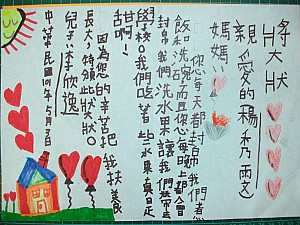 獎大狀
親愛的楊秀雯
媽媽，
你每天都封幫我們煮
飯和洗碗，而且你每晚上都會
封幫我們洗水果讓我們帶去
學校。我們吃著 水果真是
甜啊！
因為您的辛苦把我扶養成
長大，特頒此狀。
兒子：李欣逸
中華民國101年5月7日